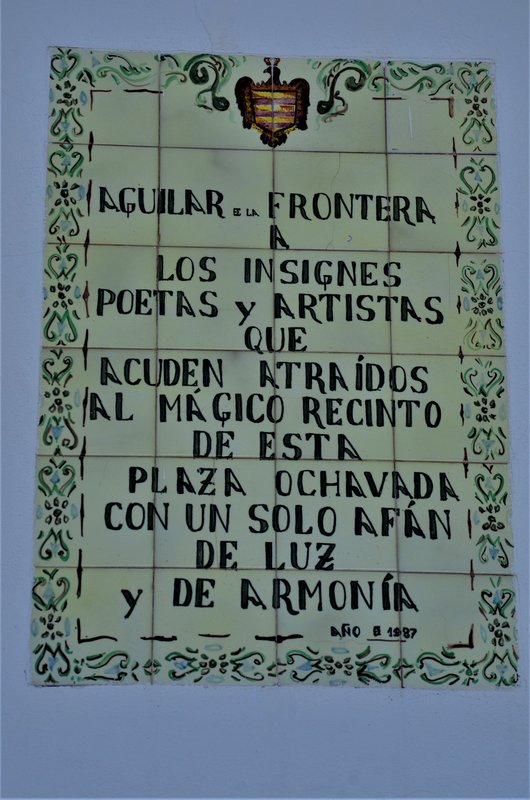 AGUILAR DE LA FRONTERA
A
LOS INSIGNES
POETAS y ARTISTAS
QUE
ACUDEN ATRAÍDOS
AL MÁGICO RECINTO
DE ESTA
PLAZA OCHAVADA
CON UN SOLO AFÁN
DE LUZ
y DE ARMONÍA
AÑO DE 1987